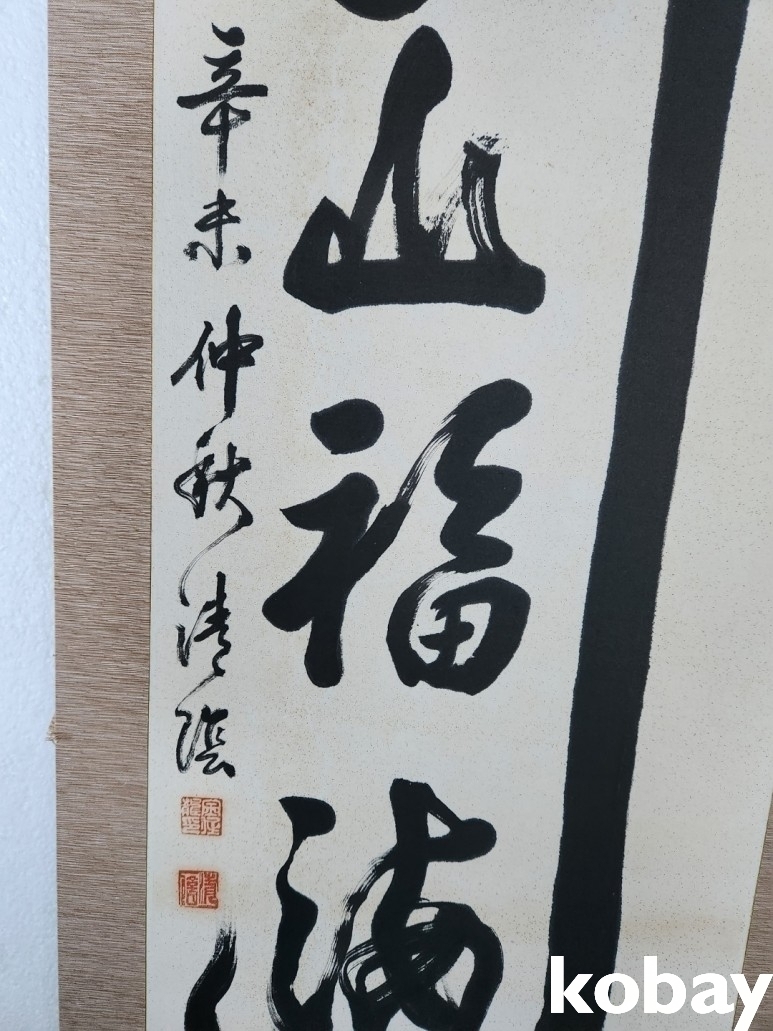 山福海
辛未仲秋清陰
kobay